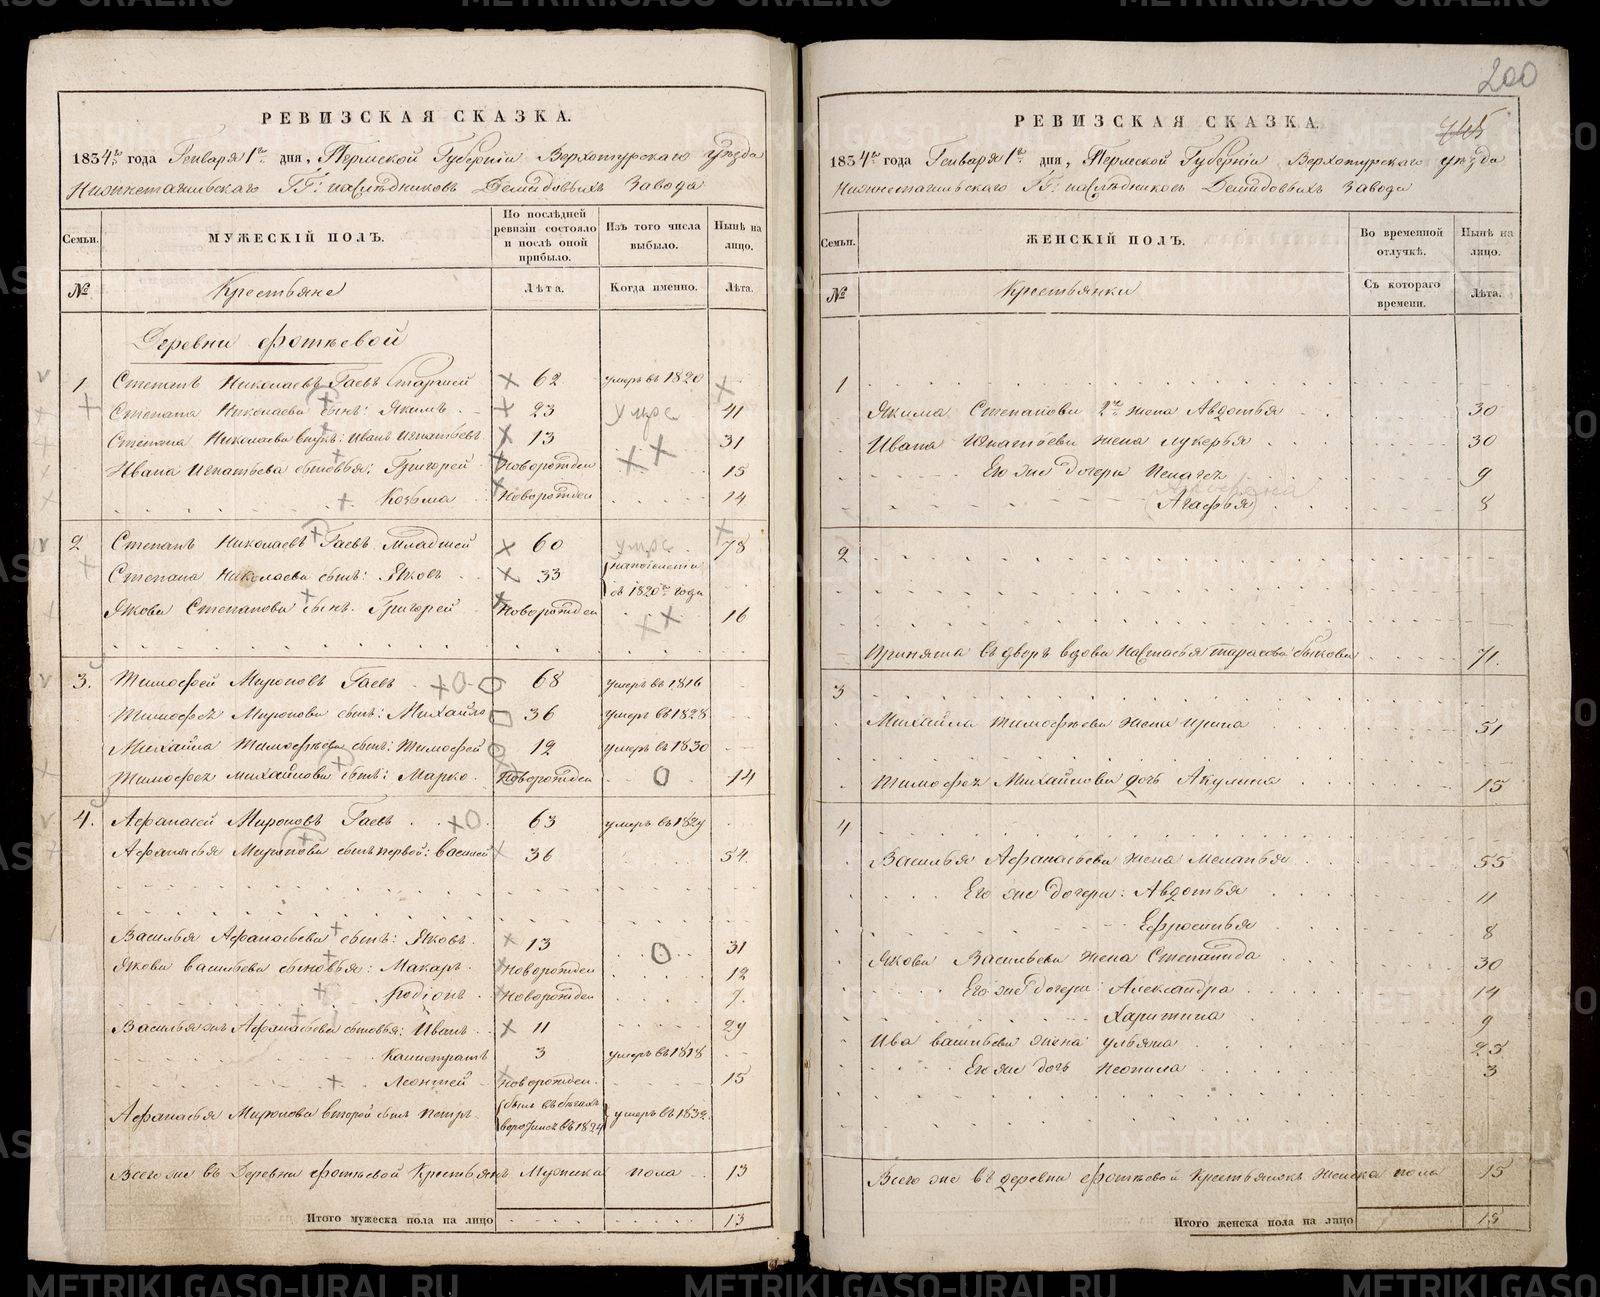 200
РЕВИЗСКАЯ СКАЗКА.
1834го года Генваря 1го дня, Пермской Губерніи Верхотурскаго уѣзда
Нижнетагильскаго ГГ: наслѣдниковъ Демидовыхъ Завода
Семьи.
МУЖЕСКІЙ ПОЛЪ.
По послѣдней ревизіи состояло и послѣ оной прибыло.
Изъ того числа выбыло.
Нынѣ на лицо.
№
Крестьяне
Лѣта.
Когда именно.
Лѣта.
Деревни Фотѣевой
1. Степанъ Николаевъ Гаевъ Старшей 62 умеръ въ 1820
Степана Николаева сынъ: Якимъ 23 умре 41
Степана Николаева внукъ: Иванъ Игнатьевъ 13 31
Ивана Игнатьева сыновья: Григорей Новорожден 15
Козьма Новорожден 14
2 Степанъ Николаевъ Гаевъ Младшей 60 умре 78
Степана Николаева сынъ: Яковъ 33 въ 1820мъ года
Якова Степанова сынъ. Григорей Новорожден 16
3. Тимофей Мироновъ Гаевъ 68 умеръ въ 1816
Тимофея Миронова сынъ: Михайло 36 умеръ въ 1828
Михайла Тимофѣева сынъ: Тимофей 12 умеръ въ 1830
Тимофея Михайлова сынъ: Марко Новорожден 14
4. Афанасей Мироновъ Гаевъ 63 умеръ въ 1829
Афанасья Миронова сынъ первой: Василей 36 54.
Василья Афанасьева сынъ: Яковъ 13 31
Якова Васильева сыновья: Макаръ Новорожден 12
Родіонъ Новорожден 7.
Василья жъ Афанасьева сыновья: Иванъ 11 29
Калистратъ 3 умеръ въ 1818
Леонтей Новорожден. 15
Афанасья Миронова второй сынъ Петръ былъ въ бѣгахъ умеръ въ 1832
Всего же въ Деревни Фотѣевой Крестьянъ Мужска пола 13
Итого мужеска пола на лицо 13
РЕВИЗСКАЯ СКАЗКА.
1834го года Генваря 1го дня, Пермской Губерніи Верхотурскаго уѣзда
Нижнетагильскаго ГГ: наслѣдниковъ Демидовыхъ Завода
Семьи.
ЖЕНСКІЙ ПОЛЪ.
Во временной отлучкѣ.
Нынѣ на лицо.
№
Крестьянки
Съ котораго времени.
Лѣта.
1
Якима Степанова 2я жена Авдотья 30
Ивана Игнатьева жена Лукерья 30
Его же дочери Пелагея 9
(Агафья) 8
2
Принята въ дворъ вдова Настасья Тарасова Быкова 71.
3
Михайла Тимофѣева жена Ирина 51
Тимофея Михайлова дочь Акулина 15
4
Василья Афанасьева жена Меланья 55
Его же дочери: Авдотья 11
Ефросинья 8
Якова Васильева жена Степанида 30
Его же дочери: Александра 14
Харитина 9
Ива Васильева жена Ульяна 23
Его же дочь Неонила 3
Всего же въ деревни Фотѣевой Крестьянокъ Женска пола 15
Итого женска пола на лицо 15
METRIKI.GASO-URAL.RU